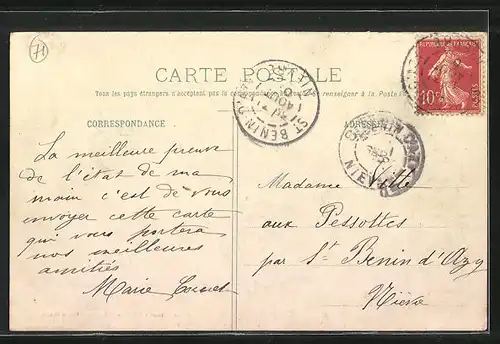 71
CARTE POSTALE
Tous les pays étrangers n'acceptent pas la correspondance
renseigner à la Poste
CORRESPONDANCE
ADRESSE
REPUBLIQUE FRANÇAISE
10c
ST BENIN D'AZY
NIEVRE
La meilleure preuve
de l'état de ma
main c'est de vous
envoyer cette carte
qui vous portera
nos meilleures
amitiés
Marie
Madame
aux Pessottes
par St Benin d'Azy
Nièvre